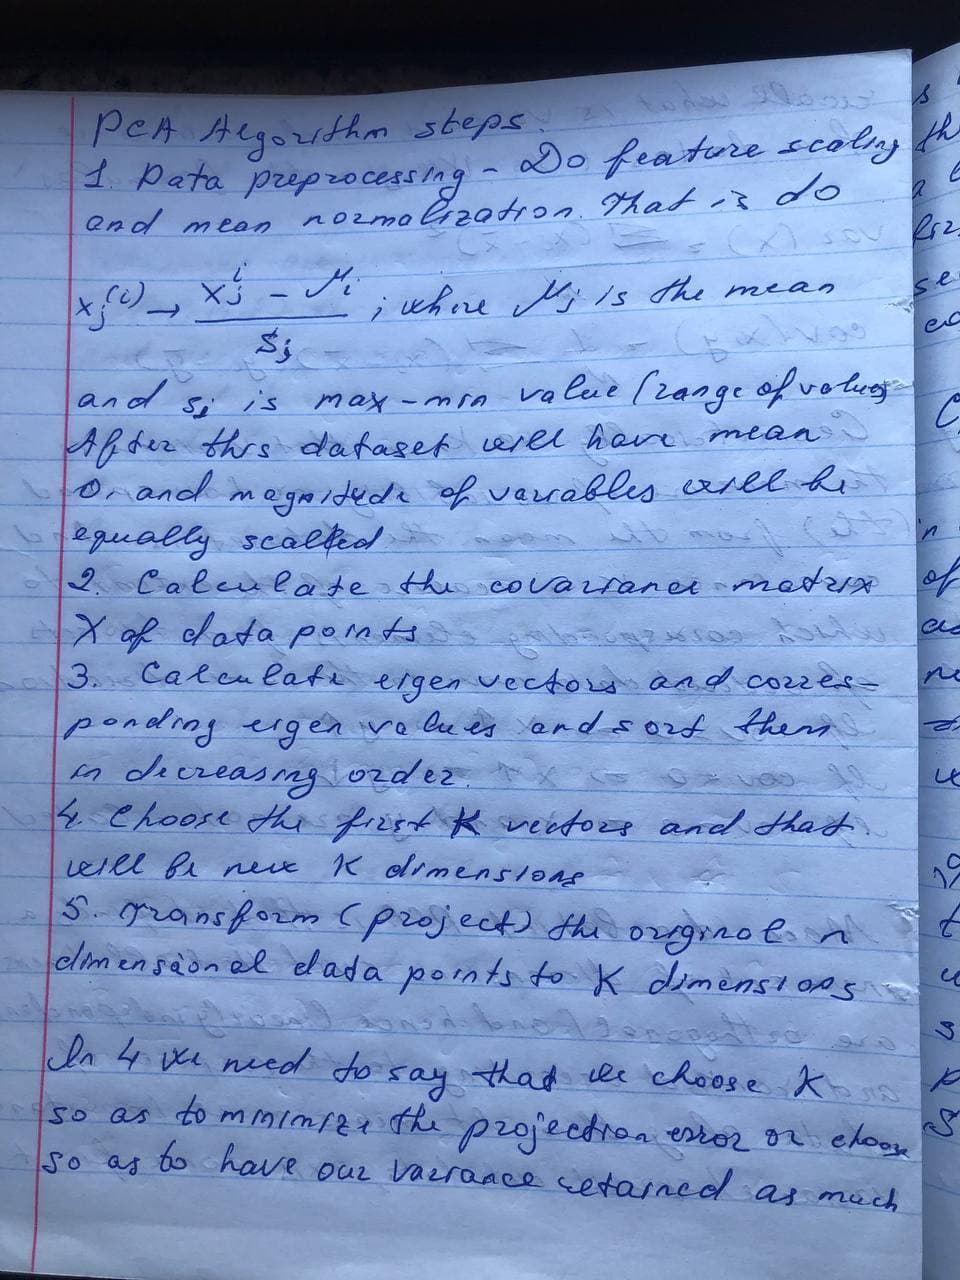 PCA Algorithm steps.
1. Data preprocessing - Do feature scaling
and mean normalization. That is do
x_j^(i) → (x_j^i - μ_i) / s_j ; where μ_j is the mean
and s_j is max-min value (range of values
After this dataset will have mean
0, and magnitude of variables will be
equally scalled
2. Calculate the covariance matrix
X of data points
3. Calculate eigen vectors and corres-
ponding eigen values and sort them
in decreasing order.
4. Choose the first K vectors and that
will be new K dimensions
5. Transform (project) the original n
dimensional data points to K dimensions
In 4 we need to say that we choose K
so as to minimize the projection error or choose
so as to have our variance retained as much